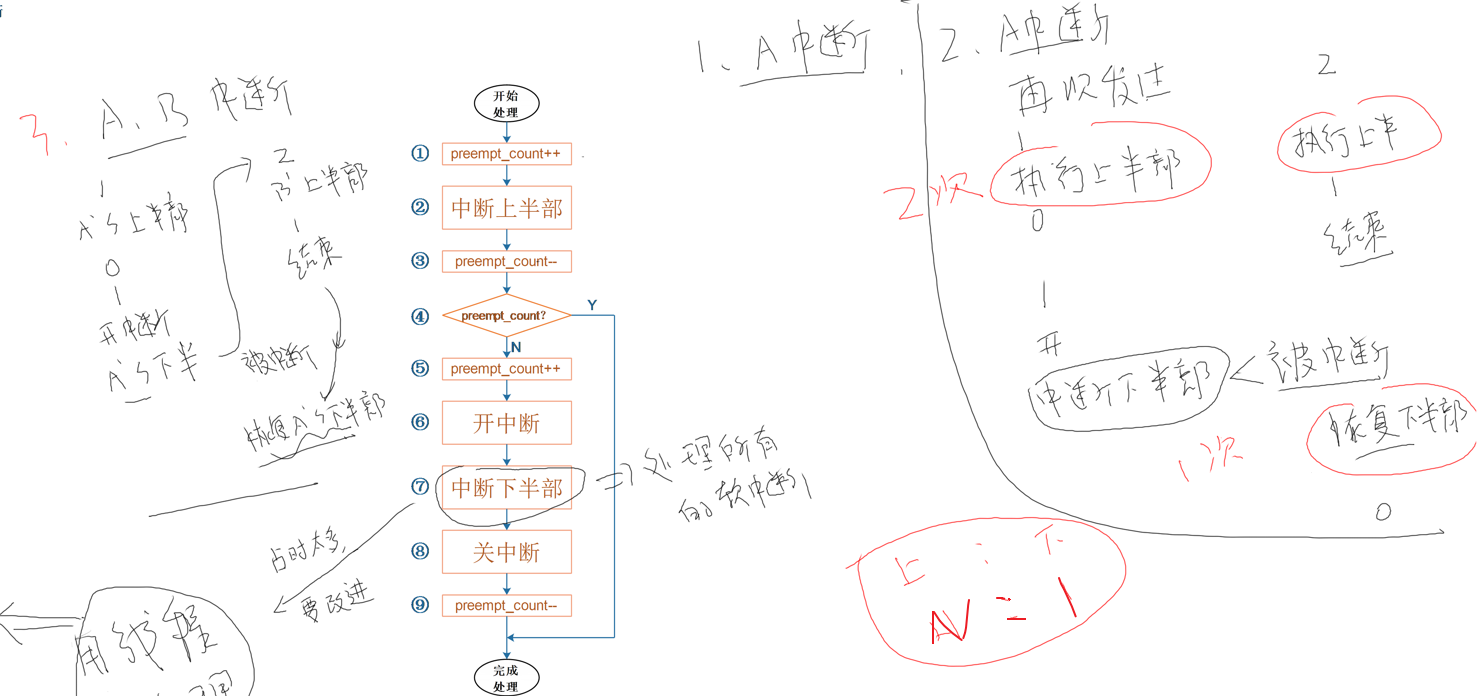 3. A、B 中断
1
A's上半部
0
1
开中断
A's下半
2
B'上半部
1
结束
被中断
恢复A's下半部
占时太多,
要改进
用线程
开始
处理
① preempt_count++
② 中断上半部
③ preempt_count--
④ preempt_count?
Y
N
⑤ preempt_count++
⑥ 开中断
⑦ 中断下半部
⑧ 关中断
⑨ preempt_count--
完成
处理
=> 处理所有
的软中断
1、A中断
2、A中断
再次发生
1
2次 执行上半部
0
1
开
中断下半部 < 被中断
2
执行上半
1
结束
1次 恢复下半部
0
上 : 下
N : 1